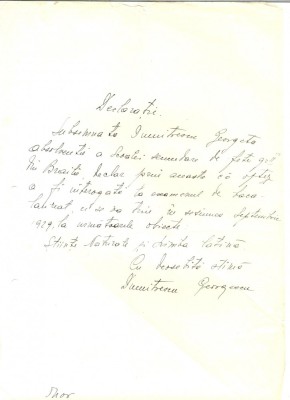 Declaratie.
Subsemnata Dumitrescu Georgeta
absolventă a școalei secundare de fete gr. II
din Braila, declar prin aceasta că optez
a fi interogată la examenul de baca-
laureat, ce se va ține în sesiunea Septembrie
1929, la urmatoarele obiecte
Stiinte Naturale și limba latină
Cu deosebită stimă
Dumitrescu Georgescu